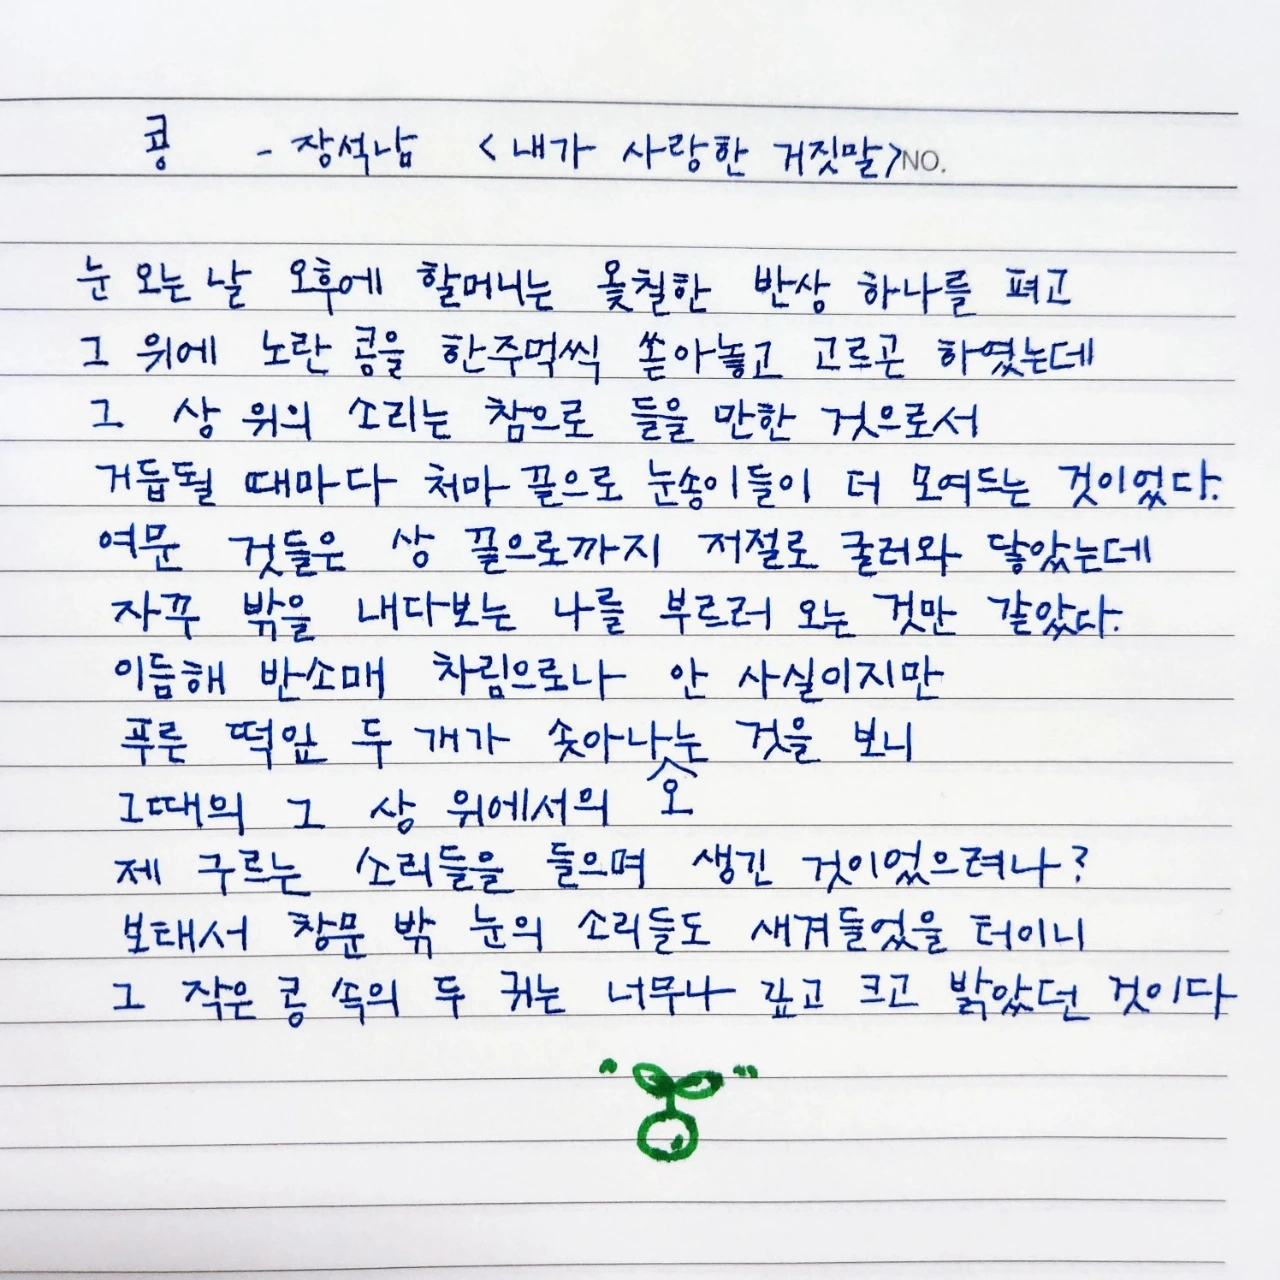 콩 - 장석남 <내가 사랑한 거짓말> NO.
눈 오는 날 오후에 할머니는 옻칠한 반상 하나를 펴고
그 위에 노란 콩을 한주먹씩 쏟아놓고 고르곤 하였는데
그 상 위의 소리는 참으로 들을 만한 것으로서
거듭될 때마다 처마 끝으로 눈송이들이 더 모여드는 것이었다.
여문 것들은 상 끝으로까지 저절로 굴러와 닿았는데
자꾸 밖을 내다보는 나를 부르러 오는 것만 같았다.
이듬해 반소매 차림으로나 안 사실이지만
푸른 떡잎 두 개가 솟아나는 것을 보니
오
그때의 그 상 위에서의
제 구르는 소리들을 들으며 생긴 것이었으려나?
보태서 창문 밖 눈의 소리들도 새겨들었을 터이니
그 작은 콩 속의 두 귀는 너무나 깊고 크고 밝았던 것이다